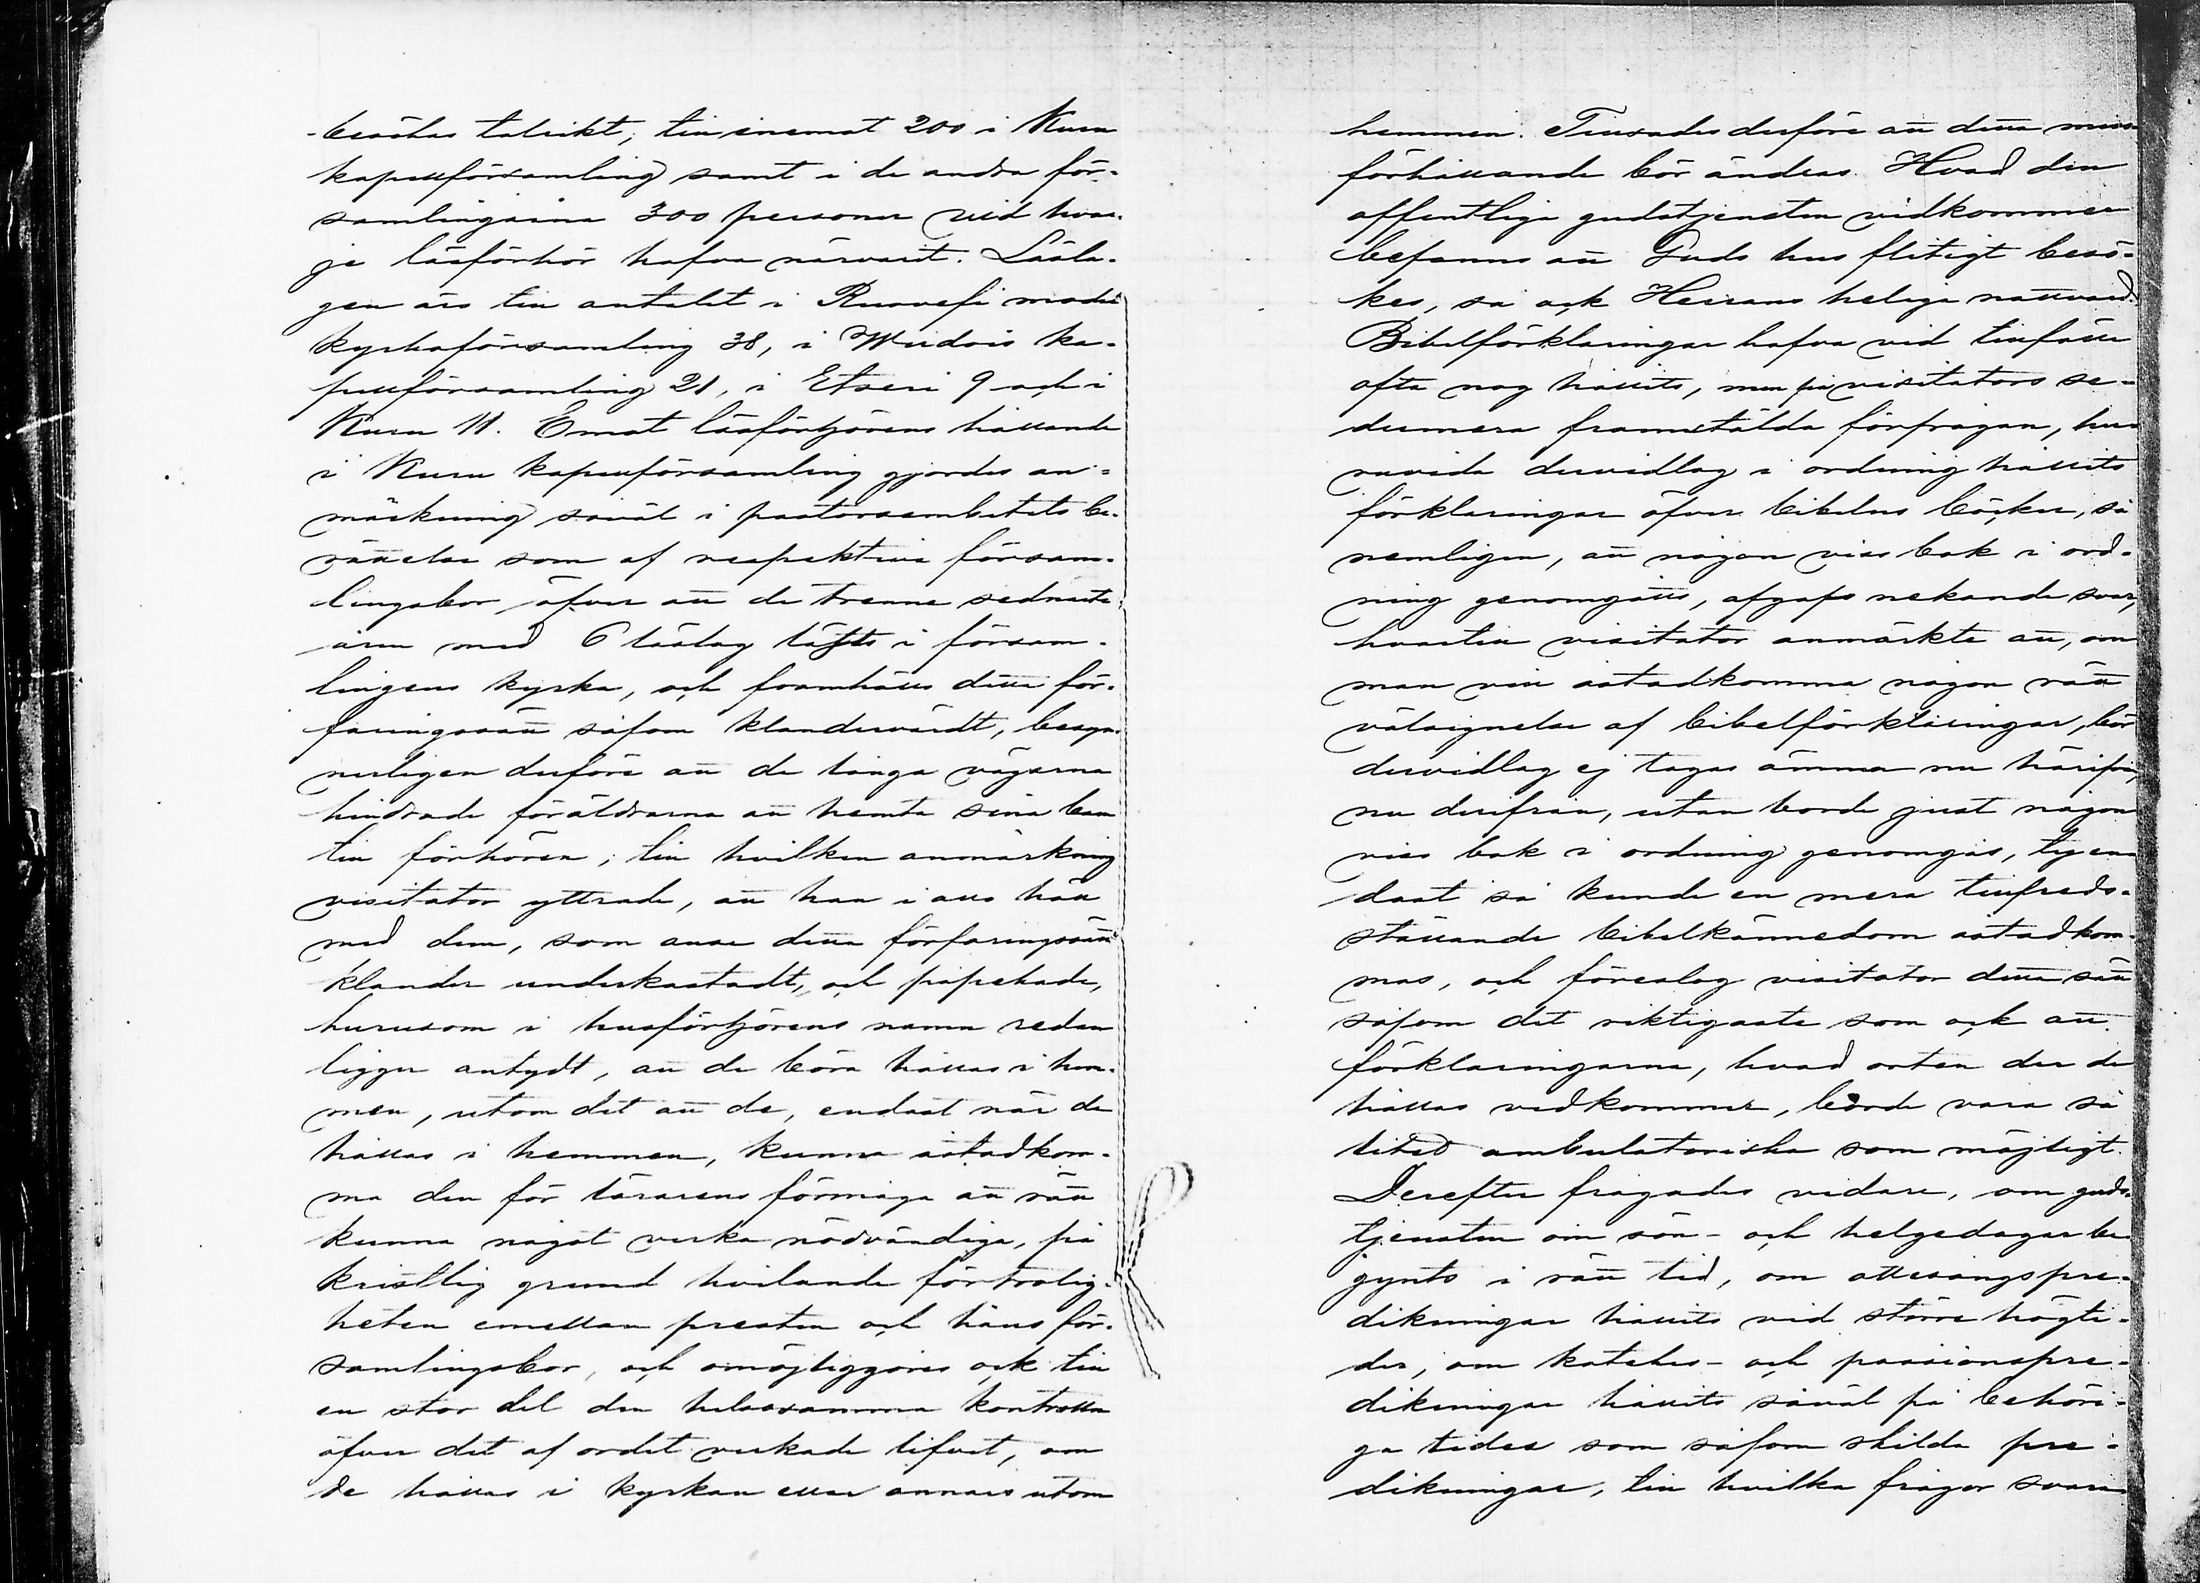 besökes talrikt, till inemot 200 i Kuru
kapellförsamling samt i de andra för-
samlingarna 300 personer vid hvar-
je läsförhör hafva närvarit. Läsla-
gen äro till antalet i Ruovesi moder
kyrkoförsamling 38, i Wirdois ka-
pellförsamling 21, i Etseri 9 och i
Kuru 11. Emot läsförhörens hållande
i Kuru kapellförsamling gjordes an-
märkning såväl i pastorsembetets be-
rättelse som af respektive försam-
lingsbor, öfver att de trenne sednaste
åren med 6 läslag hållits i försam-
lingens kyrka, och framhölls detta för-
faringssätt såsom klandervärdt, besyn-
nerligen derföre att de långa vägarna
hindrade föräldrarna att hemta sina barn
till förhören; till hvilken anmärkning
visitator yttrade, att han i allo höll
med dem, som anse detta förfaringssätt
klander underkastadt, och påpekade,
hurusom i husförhörens namn redan
ligger antydt, att de böra hållas i hem-
men, utom det att de, endast när de
hållas i hemmen, kunna åstadkom-
ma den för lärarens förmåga att rätt
kunna något verka nödvändiga, på
kristlig grund hvilande förtrolig-
heten emellan presten och hans för-
samlingsbor, och omöjliggöres ock till
en stor del den helosamma kontrollen
öfver det af ordet verkade lifvet, om
de hållas i kyrkan eller annars utom
hemmen. Tillsades derföre att detta miss-
förhållande bör ändras. Hvad den
offentliga gudstjensten vidkommer
befanns att Guds hus flitigt besö-
kes, så ock Herrans heliga nattvard.
Bibelförklaringar hafva vid tillfälle
ofta nog hållits, men på visitators se-
dermera framstälda förfrågan, hu-
ruvida dervidlag i ordning hållits
förklaringar öfver bibelns böcker, så
nemligen, att någon viss bok i ord-
ning genomgåtts, afgafs nekande svar,
hvartill visitator anmärkte att, om
man vill åstadkomma någon rätt
välsignelse af bibelförklaringar, bör
dervidlag ej tagas ämnen nu härifrån,
nu derifrån, utan borde just någon
viss bok i ordning genomgås, ty en-
dast så kunde en mera tillfreds-
ställande bibelkännedom åstadkom-
mas, och föreslog visitator detta sätt
såsom det riktigaste som ock att
förklaringarna, hvad orten der de
hållas vidkommer, borde vara så
litet ambulatoriska som möjligt.
Derefter frågades vidare, om guds-
tjensten om sön- och helgedagar be-
gynts i rätt tid, om ottesångspre-
dikningar hållits vid större högti-
der, om kateches- och passionspre-
dikningar hållits såväl på behöri-
ga tider som såsom skilda pre-
dikningar, till hvilka frågor svara-